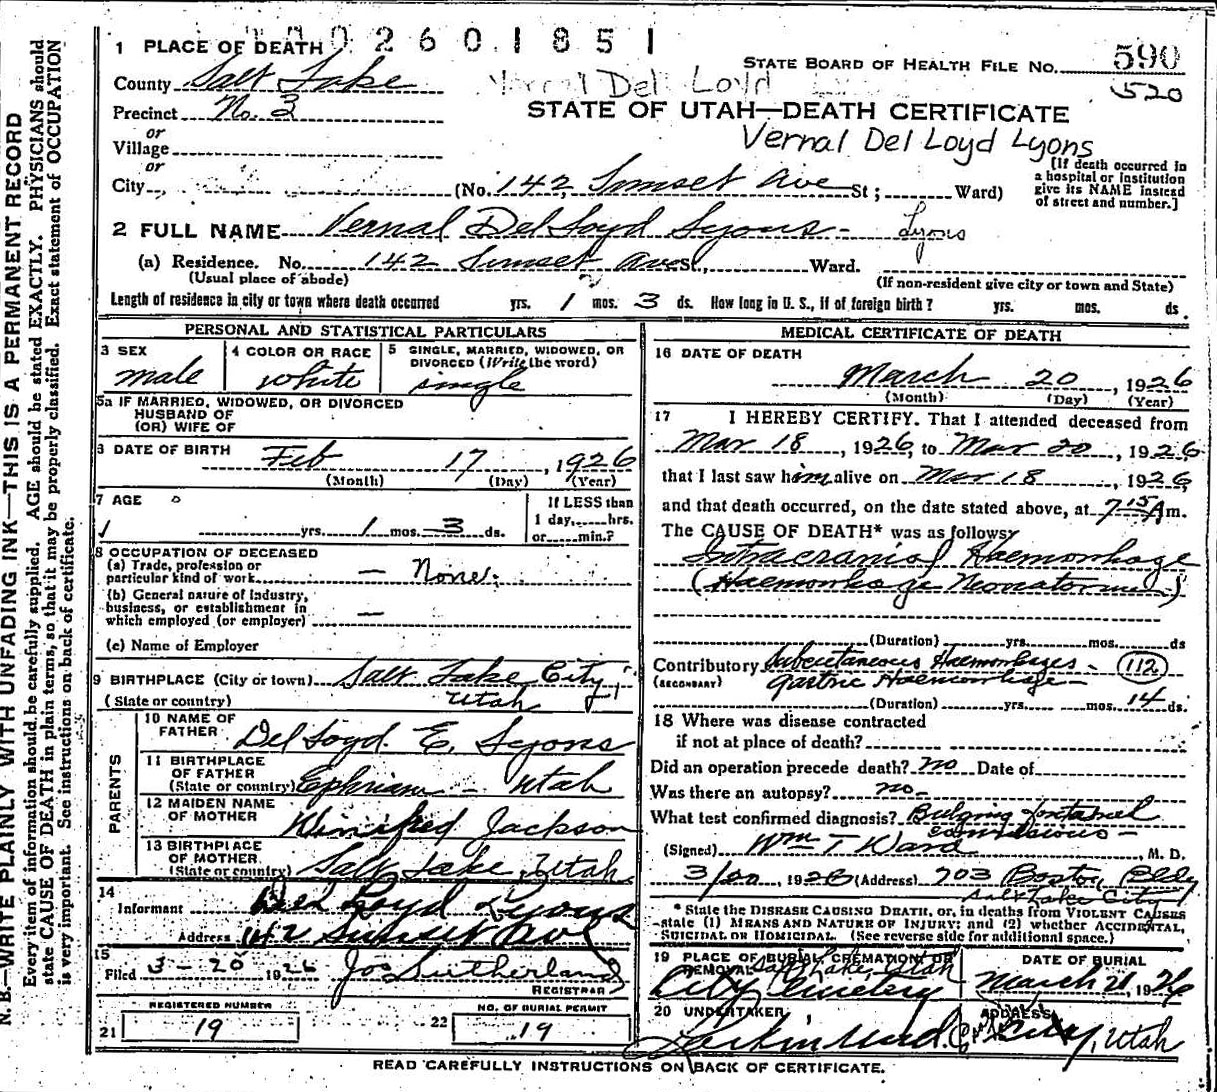 2 6 0 1 8 5 1
1 PLACE OF DEATH
STATE BOARD OF HEALTH FILE No. 590
County Salt Lake
Vernal Del Loyd
520
Precinct No. 3
STATE OF UTAH—DEATH CERTIFICATE
or
Village
Vernal Del Loyd Lyons
or
City (No. 142 Sunset Ave St; Ward)
[If death occurred in
a hospital or institution
give its NAME instead
of street and number.]
2 FULL NAME Vernal Del Loyd Lyons - Lyons
(a) Residence. No. 142 Sunset Ave St., Ward.
(Usual place of abode)
(If non-resident give city or town and State)
Length of residence in city or town where death occurred yrs. 1 mos. 3 ds. How long in U. S., if of foreign birth? yrs. mos. ds.
PERSONAL AND STATISTICAL PARTICULARS
3 SEX
male
4 COLOR OR RACE
white
5 SINGLE, MARRIED, WIDOWED, OR
DIVORCED (Write the word)
single
5a IF MARRIED, WIDOWED, OR DIVORCED
HUSBAND OF
(OR) WIFE OF
6 DATE OF BIRTH Feb 17, 1926
(Month) (Day) (Year)
7 AGE
yrs. 1 mos. 3 ds.
If LESS than
1 day, hrs.
or min.?
8 OCCUPATION OF DECEASED
(a) Trade, profession or
particular kind of work — None.
(b) General nature of industry,
business, or establishment in
which employed (or employer) —
(c) Name of Employer
9 BIRTHPLACE (City or town) Salt Lake City,
(State or country) Utah
PARENTS
10 NAME OF
FATHER Del Loyd E. Lyons
11 BIRTHPLACE
OF FATHER
(State or country) Ephriam - Utah
12 MAIDEN NAME
OF MOTHER Winifred Jackson
13 BIRTHPLACE
OF MOTHER
(State or country) Salt Lake, Utah
14
Informant Del Loyd Lyons
Address 142 Sunset Ave
15
Filed 3-20 1926 Jos Sutherland
REGISTRAR
REGISTERED NUMBER
21 19
NO. OF BURIAL PERMIT
22 19
MEDICAL CERTIFICATE OF DEATH
16 DATE OF DEATH
March 20, 1926
(Month) (Day) (Year)
17 I HEREBY CERTIFY. That I attended deceased from
Mar 18, 1926, to Mar 20, 1926
that I last saw him alive on Mar 18, 1926,
and that death occurred, on the date stated above, at 7 15 A m.
The CAUSE OF DEATH* was as follows
Intracranial Haemorrhage
(Haemorrhage Neonatorum)
(Duration) yrs. mos. ds
Contributory Subcutaneous Haemorrhages - 112
(SECONDARY) Gastric Haemorrhage
(Duration) yrs. mos. 14 ds.
18 Where was disease contracted
if not at place of death?
Did an operation precede death? no Date of
Was there an autopsy? no-
What test confirmed diagnosis? Bulging fontanel
(Signed) Wm T Ward, M. D.
1926 (Address) 703 Boston Bldg
Salt Lake City
* State the DISEASE CAUSING DEATH, or, in deaths from VIOLENT CAUSES
state (1) MEANS AND NATURE OF INJURY; and (2) whether ACCIDENTAL,
SUICIDAL OR HOMICIDAL. (See reverse side for additional space.)
19 PLACE OF BURIAL, CREMATION, OR
REMOVAL Salt Lake, Utah
City Cemetery
DATE OF BURIAL
March 21, 1926
20 UNDERTAKER
Larkin Und. Co
ADDRESS
City, Utah
READ CAREFULLY INSTRUCTIONS ON BACK OF CERTIFICATE.
N. B.—WRITE PLAINLY WITH UNFADING INK—THIS IS A PERMANENT RECORD
Every item of information should be carefully supplied. AGE should be stated EXACTLY. PHYSICIANS should
state CAUSE OF DEATH in plain terms, so that it may be properly classified. Exact statement of OCCUPATION
is very important. See instructions on back of certificate.